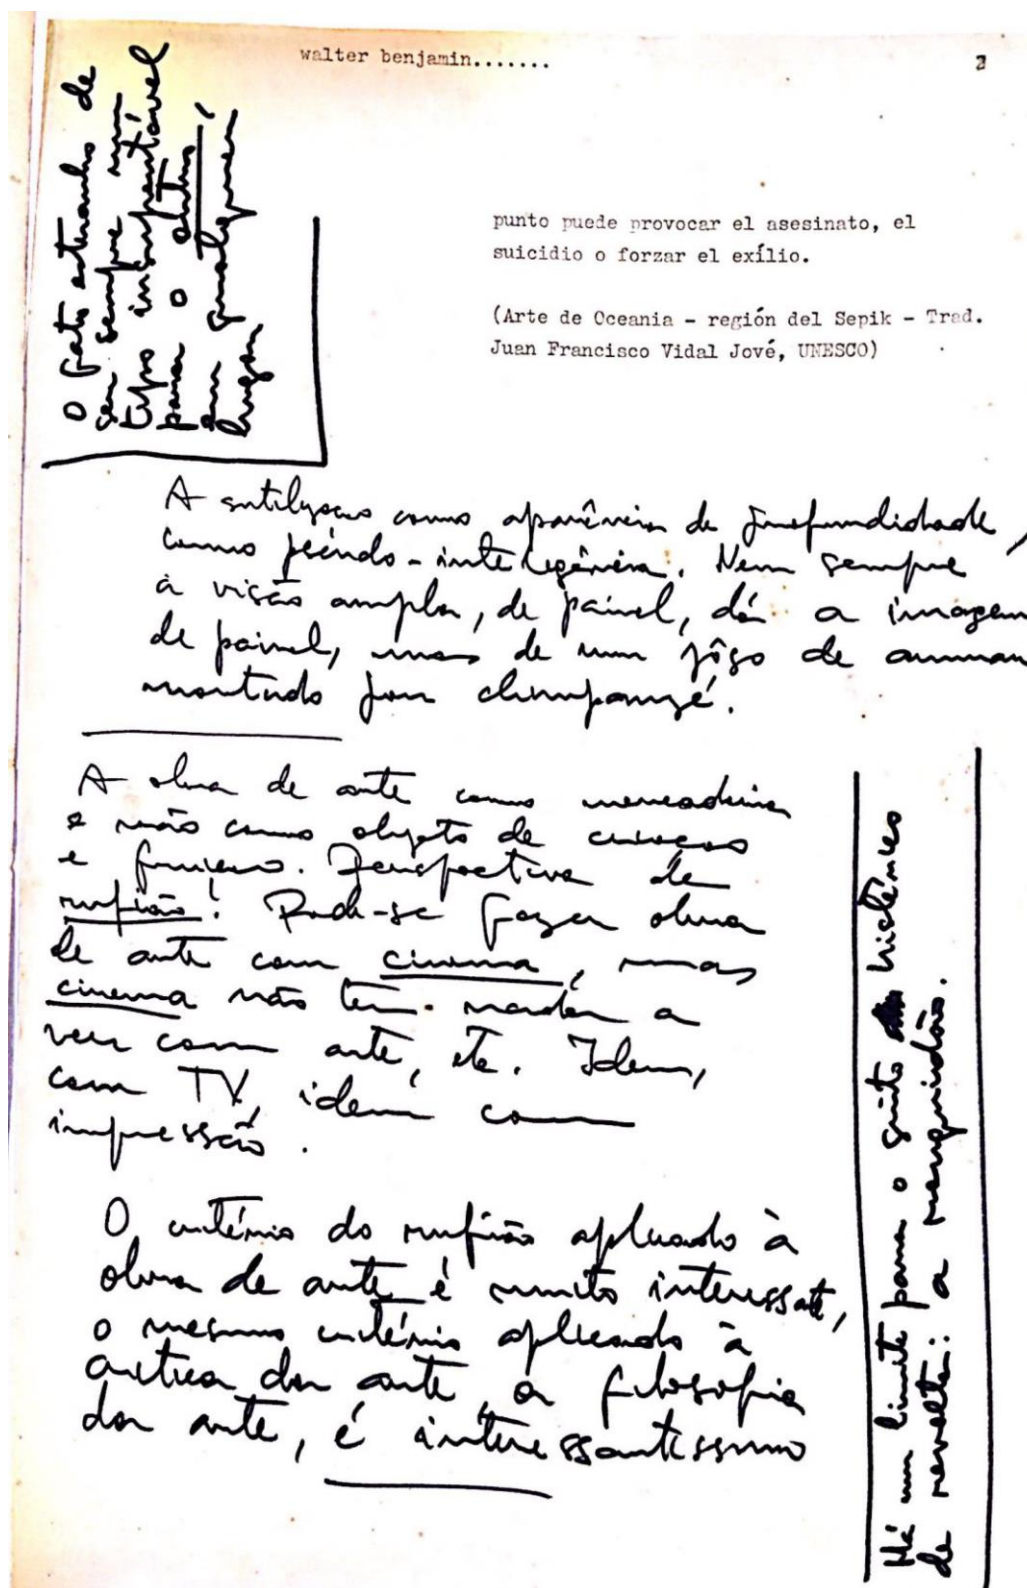 walter benjamin.......
2
O fato estranho de
ser sempre um
tipo insuportável
para o outro,
em qualquer
lugar,
punto puede provocar el asesinato, el
suicidio o forzar el exílio.
(Arte de Oceania - región del Sepik - Trad.
Juan Francisco Vidal Jové, UNESCO)
A sutilezas como aparência de profundidade,
como pseudo-inteligência. Nem sempre
a visão ampla, de painel, dá a imagem
de painel, mas de um jôgo de armar
montado por chimpanzé.
A obra de arte como mercadoria
e não como objeto de
e . Perspectiva de
rufião! Pode-se fazer obra
de arte com cinema, mas
cinema não tem nada a
ver com arte, etc. Idem,
com TV, idem com
impressão.
O critério do rufião aplicado à
obra de arte é muito interessate,
o mesmo critério aplicado à
crítica da arte, a filosofia
da arte, é interessantíssimo
Há um limite para o grito histérico
de revolta: a mesquidão.